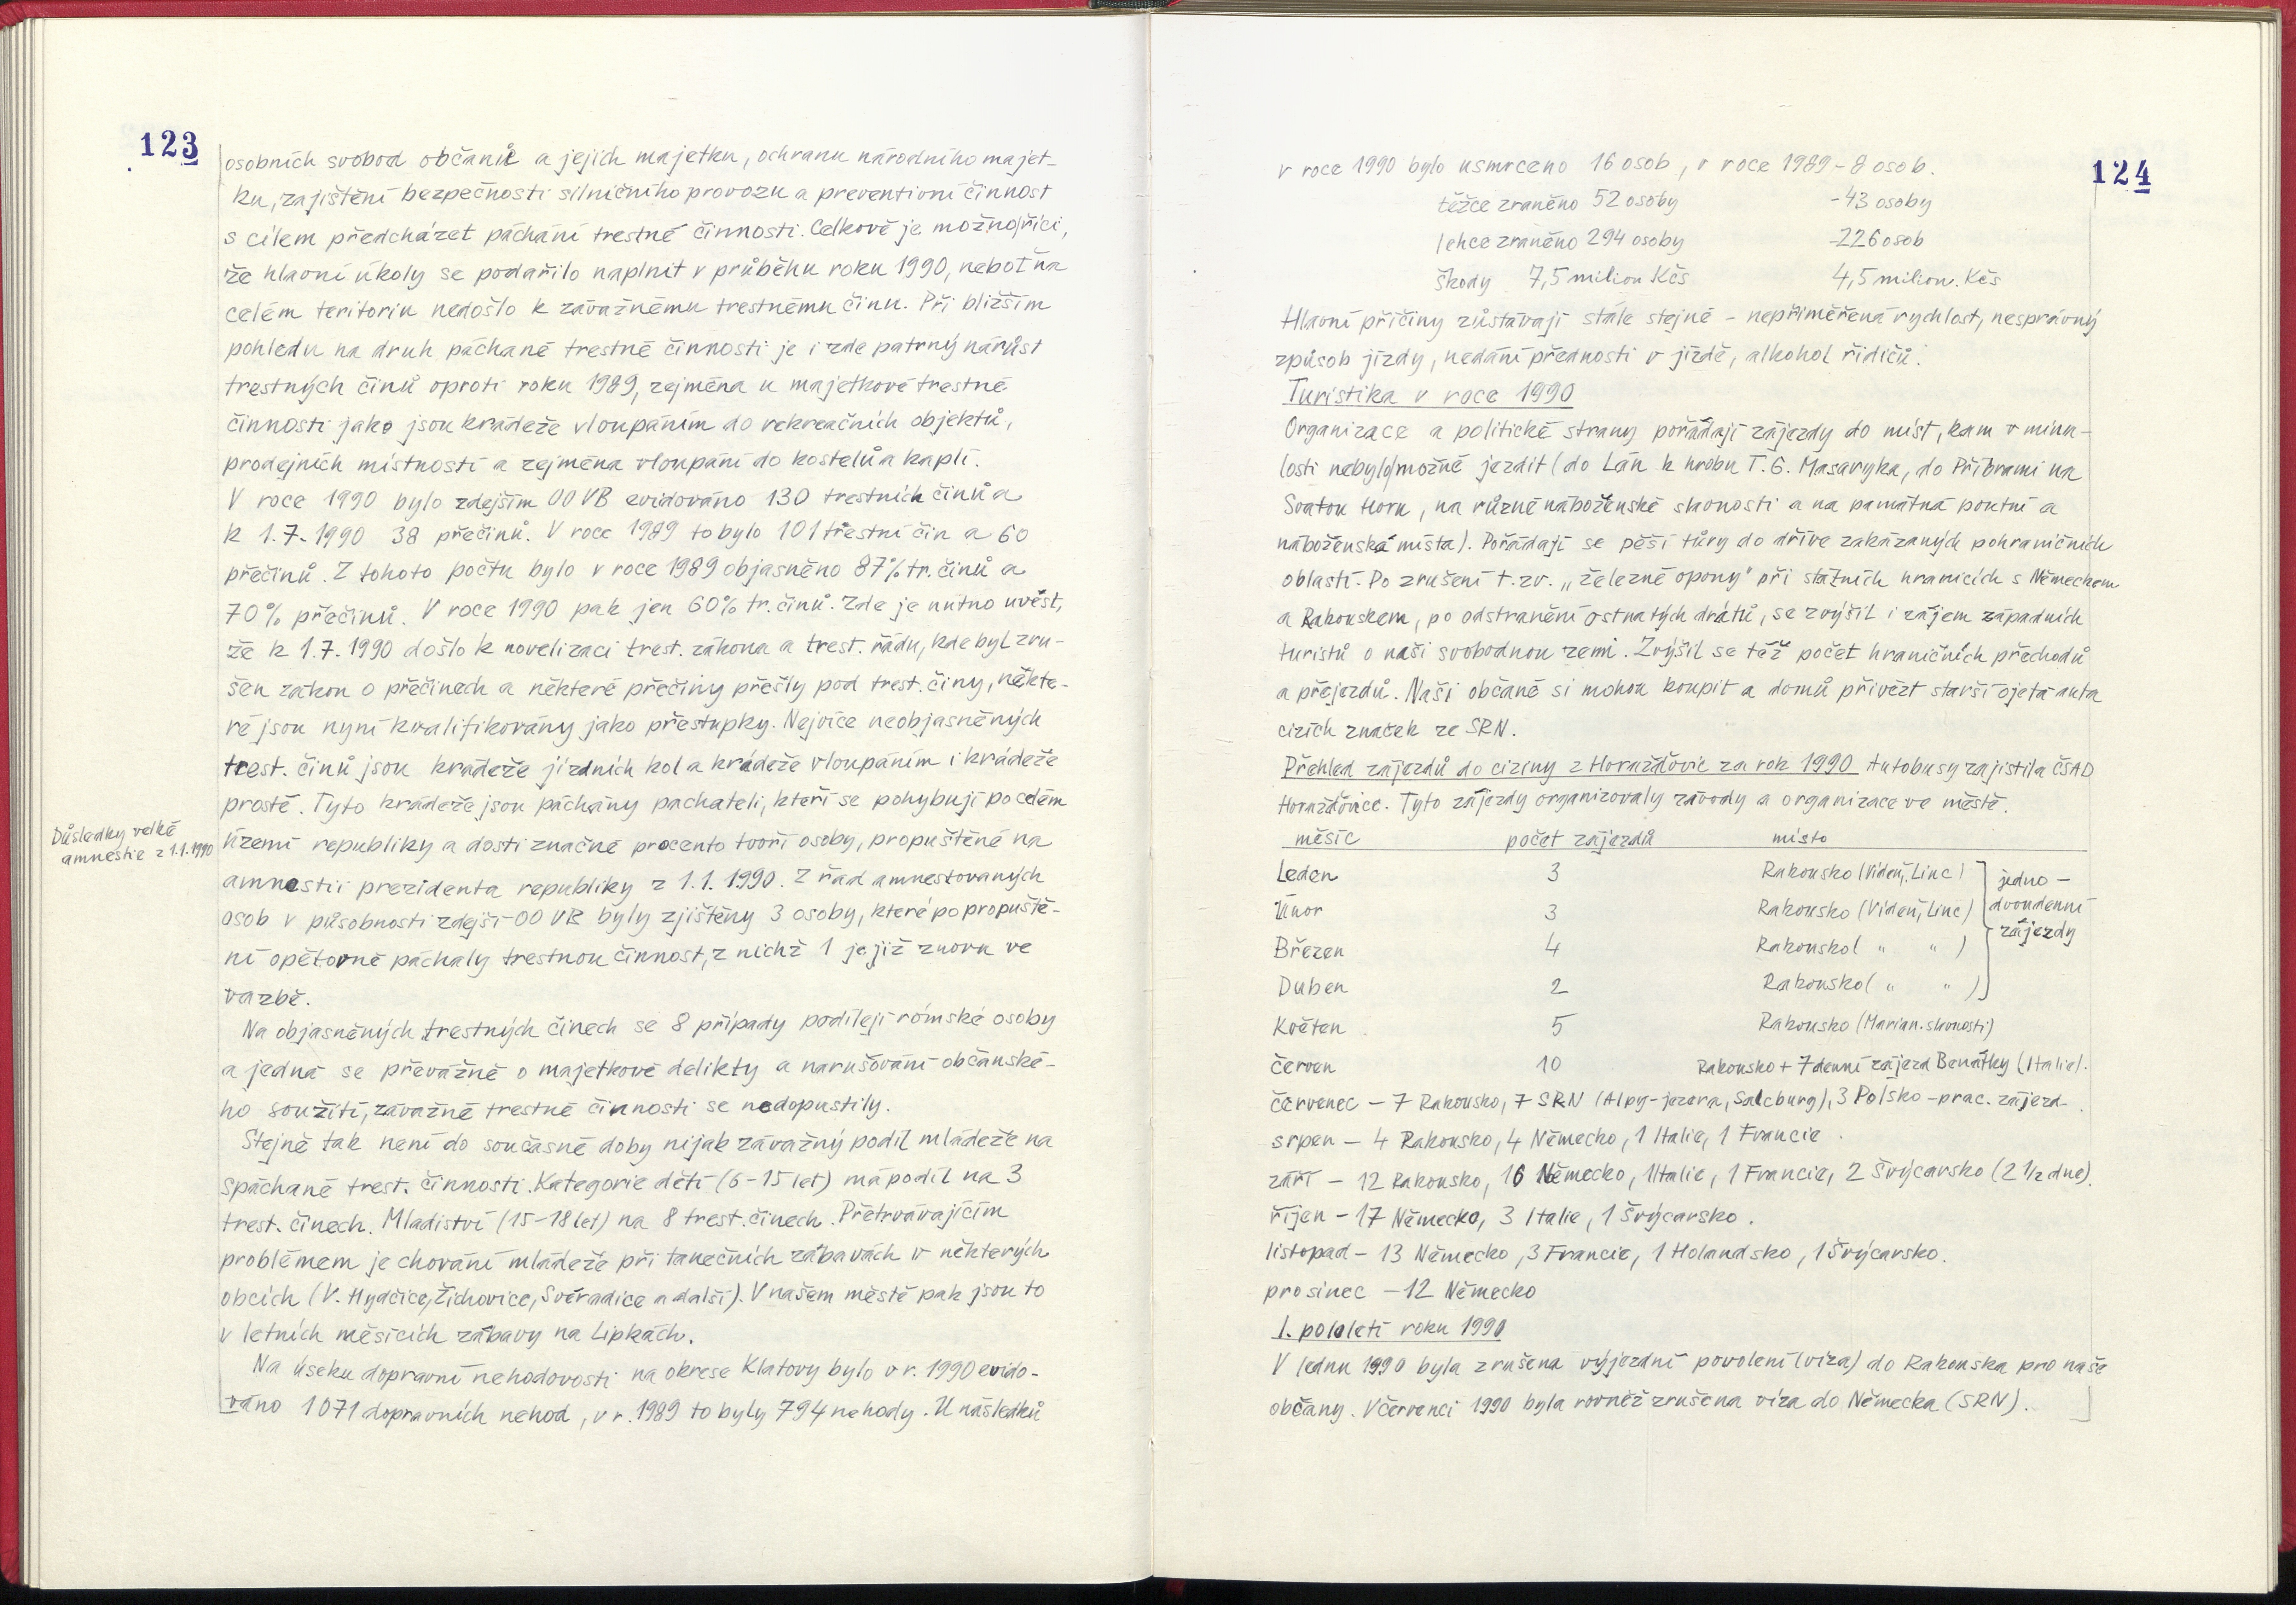 123
osobních svobod občanů a jejich majetku, ochranu národního majet-
ku, zajištění bezpečnosti silničního provozu a preventivní činnost
s cílem předcházet páchání trestné činnosti. Celkově je možno říci,
že hlavní úkoly se podařilo naplnit v průběhu roku 1990, neboť na
celém teritoriu nedošlo k závažnému trestnému činu. Při bližším
pohledu na druh páchané trestné činnosti je i zde patrný nárůst
trestných činů oproti roku 1989, zejména u majetkové trestné
činnosti jako jsou krádeže vloupáním do rekreačních objektů,
prodejních místností a zejména vloupání do kostelů a kaplí.
V roce 1990 bylo zdejším OO VB evidováno 130 trestních činů a
k 1.7.1990 38 přečinů. V roce 1989 to bylo 101 trestní čin a 60
přečinů. Z tohoto počtu bylo v roce 1989 objasněno 87% tr. činů a
70% přečinů. V roce 1990 pak jen 60% tr. činů. Zde je nutno uvést,
že k 1.7.1990 došlo k novelizaci trest. zákona a trest. řádu, kde byl zru-
šen zákon o přečinech a některé přečiny přešly pod trest. činy, někte-
ré jsou nyní kvalifikovány jako přestupky. Nejvíce neobjasněných
trest. činů jsou krádeže jízdních kol a krádeže vloupáním i krádeže
prosté. Tyto krádeže jsou páchány pachateli, kteří se pohybují po celém
Důsledky velké
amnestie z 1.1.1990
území republiky a dosti značné procento tvoří osoby, propuštěné na
amnestii prezidenta republiky z 1.1.1990. Z řad amnestovaných
osob v působnosti zdejší OO VB byly zjištěny 3 osoby, které po propuště-
ní opětovně páchaly trestnou činnost, z nichž 1 je již znovu ve
vazbě.
Na objasněných trestných činech se 8 případy podílejí rómské osoby
a jedná se převážně o majetkové delikty a narušování občanské-
ho soužití, závažné trestné činnosti se nedopustily.
Stejně tak není do současné doby nijak závažný podíl mládeže na
spáchané trest. činnosti. Kategorie dětí (6-15 let) má podíl na 3
trest. činech. Mladiství (15-18 let) na 8 trest. činech. Přetrvávajícím
problémem je chování mládeže při tanečních zábavách v některých
obcích (V. Hydčice, Žichovice, Svéradice a další). V našem městě pak jsou to
v letních měsících zábavy na Lipkách.
Na úseku dopravní nehodovosti na okrese Klatovy bylo v r. 1990 evido-
váno 1071 dopravních nehod, v r. 1989 to byly 794 nehody. U následků
124
v roce 1990 bylo usmrceno 16 osob, v roce 1989 - 8 osob.
těžce zraněno 52 osoby - 43 osoby
lehce zraněno 294 osoby - 226 osob
škody 7,5 milion Kčs 4,5 milion. Kčs
Hlavní příčiny zůstávají stále stejné - nepřiměřená rychlost, nesprávný
způsob jízdy, nedání přednosti v jízdě, alkohol řidičů.
Turistika v roce 1990
Organizace a politické strany pořádají zájezdy do míst, kam v minu-
losti nebylo možné jezdit (do Lán k hrobu T. G. Masaryka, do Příbrami na
Svatou Horu, na různé náboženské slavnosti a na památná poutní a
náboženská místa). Pořádají se pěší túry do dříve zakázaných pohraničních
oblastí. Po zrušení t. zv. „železné opony" při státních hranicích s Německem
a Rakouskem, po odstranění ostnatých drátů, se zvýšil i zájem západních
turistů o naši svobodnou zemi. Zvýšil se též počet hraničních přechodů
a přejezdů. Naši občané si mohou koupit a domů přivézt starší ojetá auta
cizích značek ze SRN.
Přehled zájezdů do ciziny z Horažďovic za rok 1990 Autobusy zajistila ČSAD
Horažďovice. Tyto zájezdy organizovaly závody a organizace ve městě.
měsíc počet zájezdů místo
Leden 3 Rakousko (Vídeň, Linc)
Únor 3 Rakousko (Vídeň, Linc)
Březen 4 Rakousko ( " " )
Duben 2 Rakousko ( " " )
jedno -
dvoudenní
zájezdy
Květen 5 Rakousko (Marian. slavnosti)
červen 10 Rakousko + 7 denní zájezd Benátky (Italie).
červenec - 7 Rakousko, 7 SRN (Alpy - jezera, Salcburg), 3 Polsko - prac. zájezd.
srpen - 4 Rakousko, 4 Německo, 1 Italie, 1 Francie.
září - 12 Rakousko, 16 Německo, 1 Italie, 1 Francie, 2 Švýcarsko (2 1/2 dne).
říjen - 17 Německo, 3 Italie, 1 Švýcarsko.
listopad - 13 Německo, 3 Francie, 1 Holandsko, 1 Švýcarsko.
prosinec - 12 Německo
I. pololetí roku 1990
V lednu 1990 byla zrušena výjezdní povolení (víza) do Rakouska pro naše
občany. V červenci 1990 byla rovněž zrušena víza do Německa (SRN).